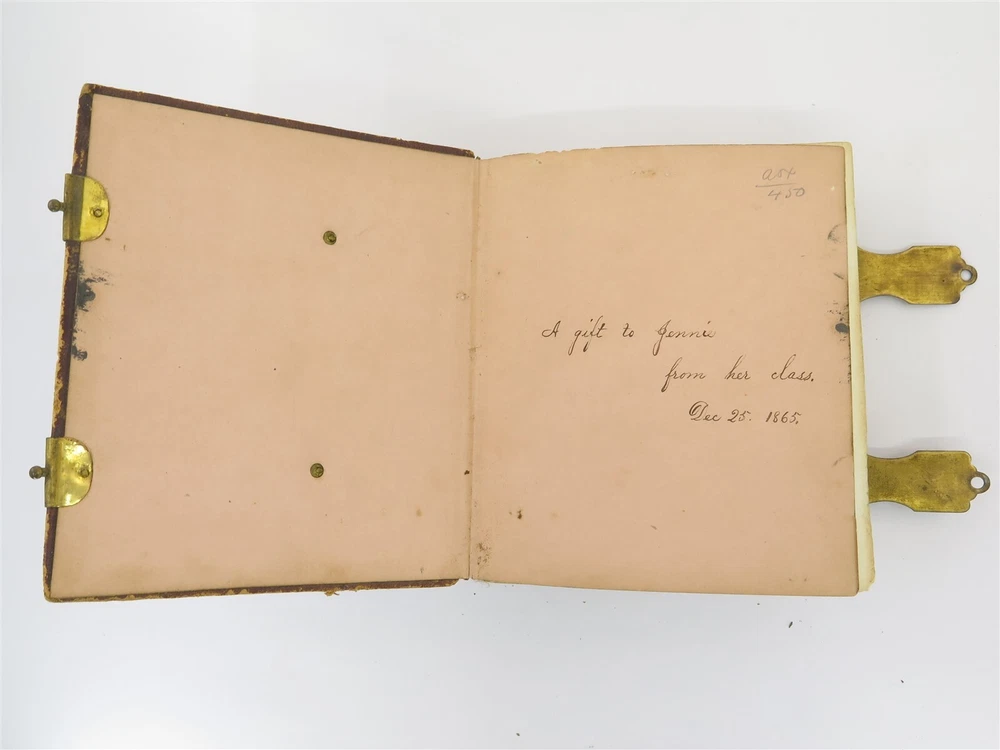 450
A gift to Jennie
from her class.
Dec 25. 1865.